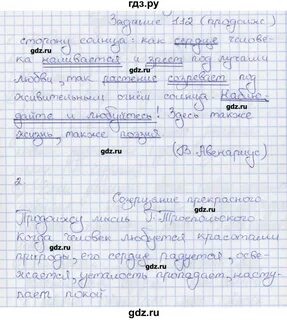 гдз.ру
Задание 112 (продолж.)
сторону солнца: как сердце челове-
ка наливается и зреет под лучами
любви, так растение созревает под
живительным огнём солнца. Наблю-
дайте и любуйтесь! Здесь также
жизнь, также поэзия
(В. Авенариус)
2
Созерцание прекрасного
Продолжу мысль Г. Троепольского.
Когда человек любуется красотами
природы, его сердце радуется, осве-
жается, усталость пропадает, насту-
пает покой.
gdz.ru
gdz.ru
gdz.ru
gdz.ru
gdz.ru
gdz.ru
gdz.ru
gdz.ru